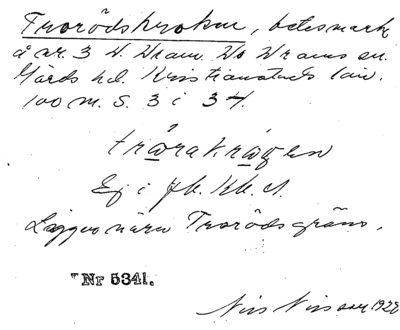 Trorödskroken, betesmark
å nr. 3 V. Vram. Vö Vrams sn.
Gärds hd. Kristianstads län.
100 m. S. 3 i 34.
trårakrågen
Ej i jb. Kb. el.
Ligger nära Trorödsgräns.
Nr 5341.
Nils Nilsson 1928